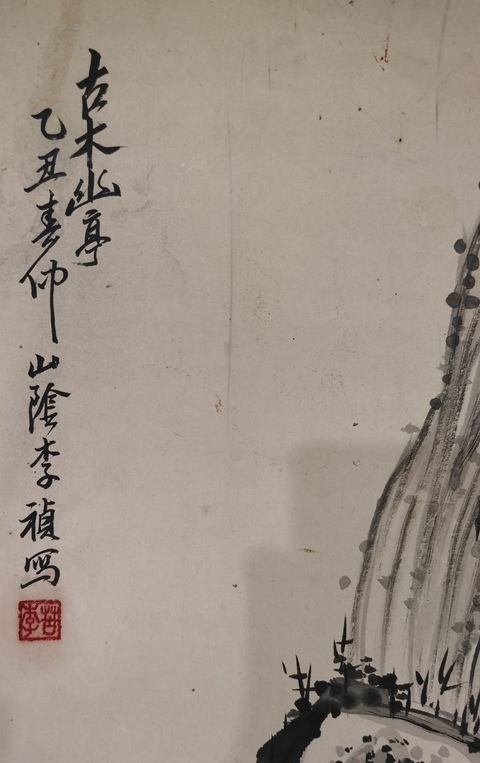 古木幽亭
乙丑春仲山陰李禎寫